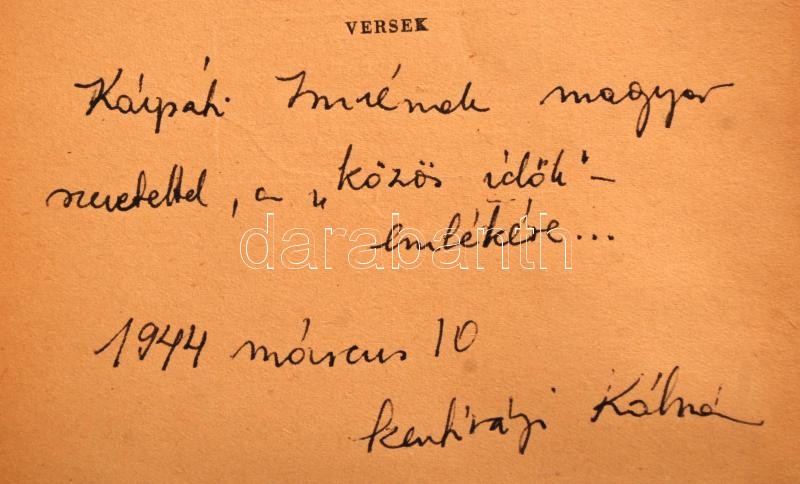 VERSEK
Kárpáti Imrének magyar
szeretettel, a „közös idők"-
emlékére...
darabanth
1944 március 10
Szentirályi Kálmán